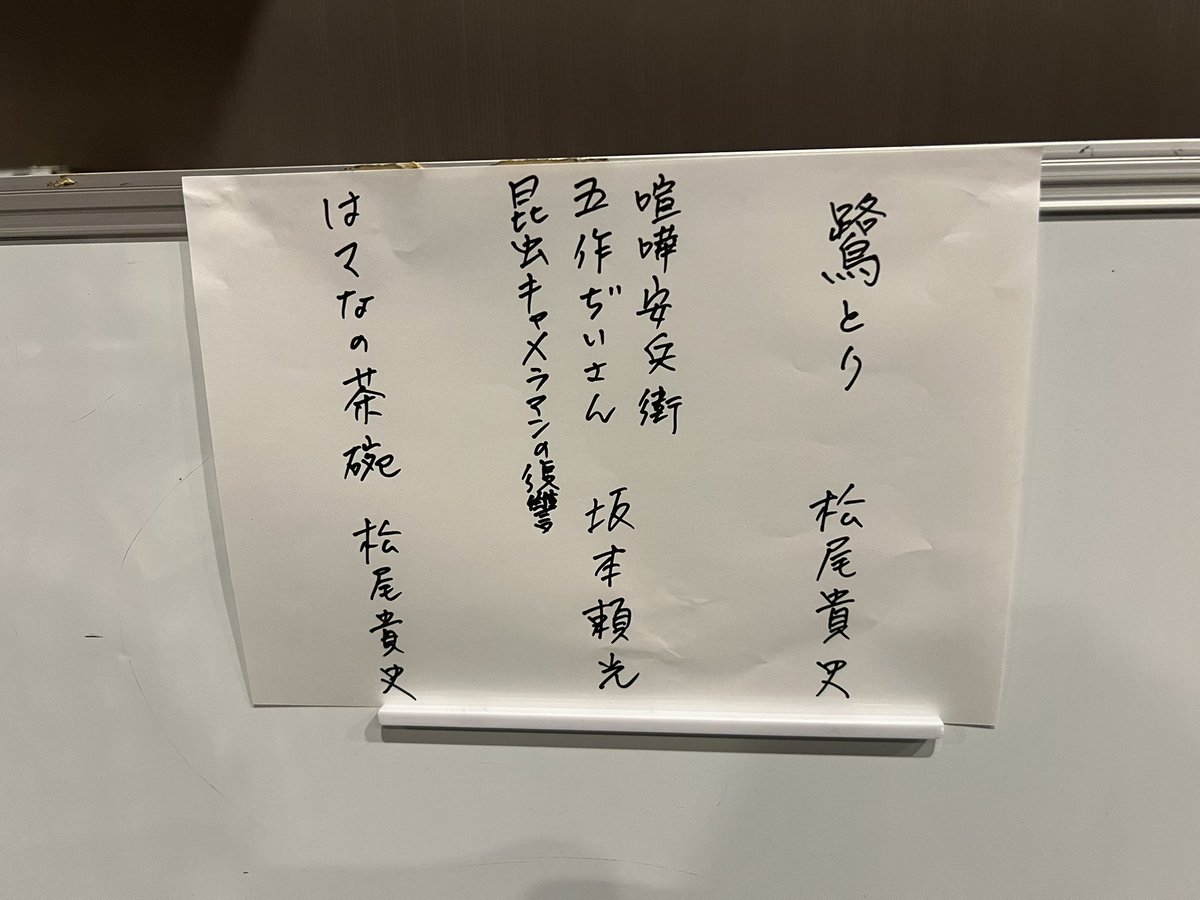 鷺とり 松尾貴史
喧嘩安兵衛
五作ぢいさん 坂本頼光
昆虫キャメラマンの復讐
はてなの茶碗 松尾貴史